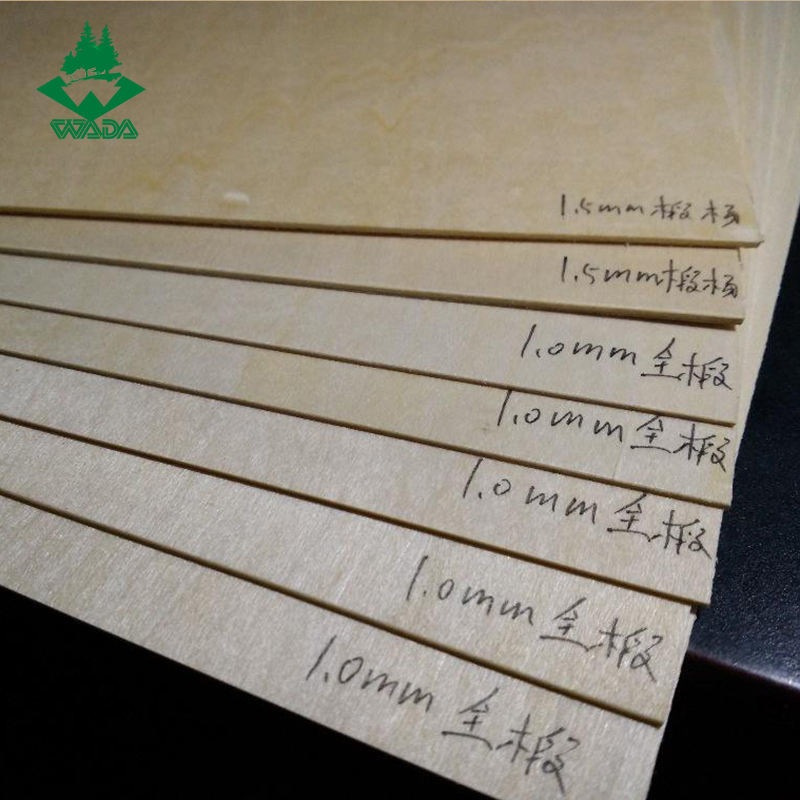 WADA
1.5mm椴杨
1.5mm椴杨
1.0mm全椴
1.0mm全椴
1.0mm全椴
1.0mm全椴
1.0mm全椴